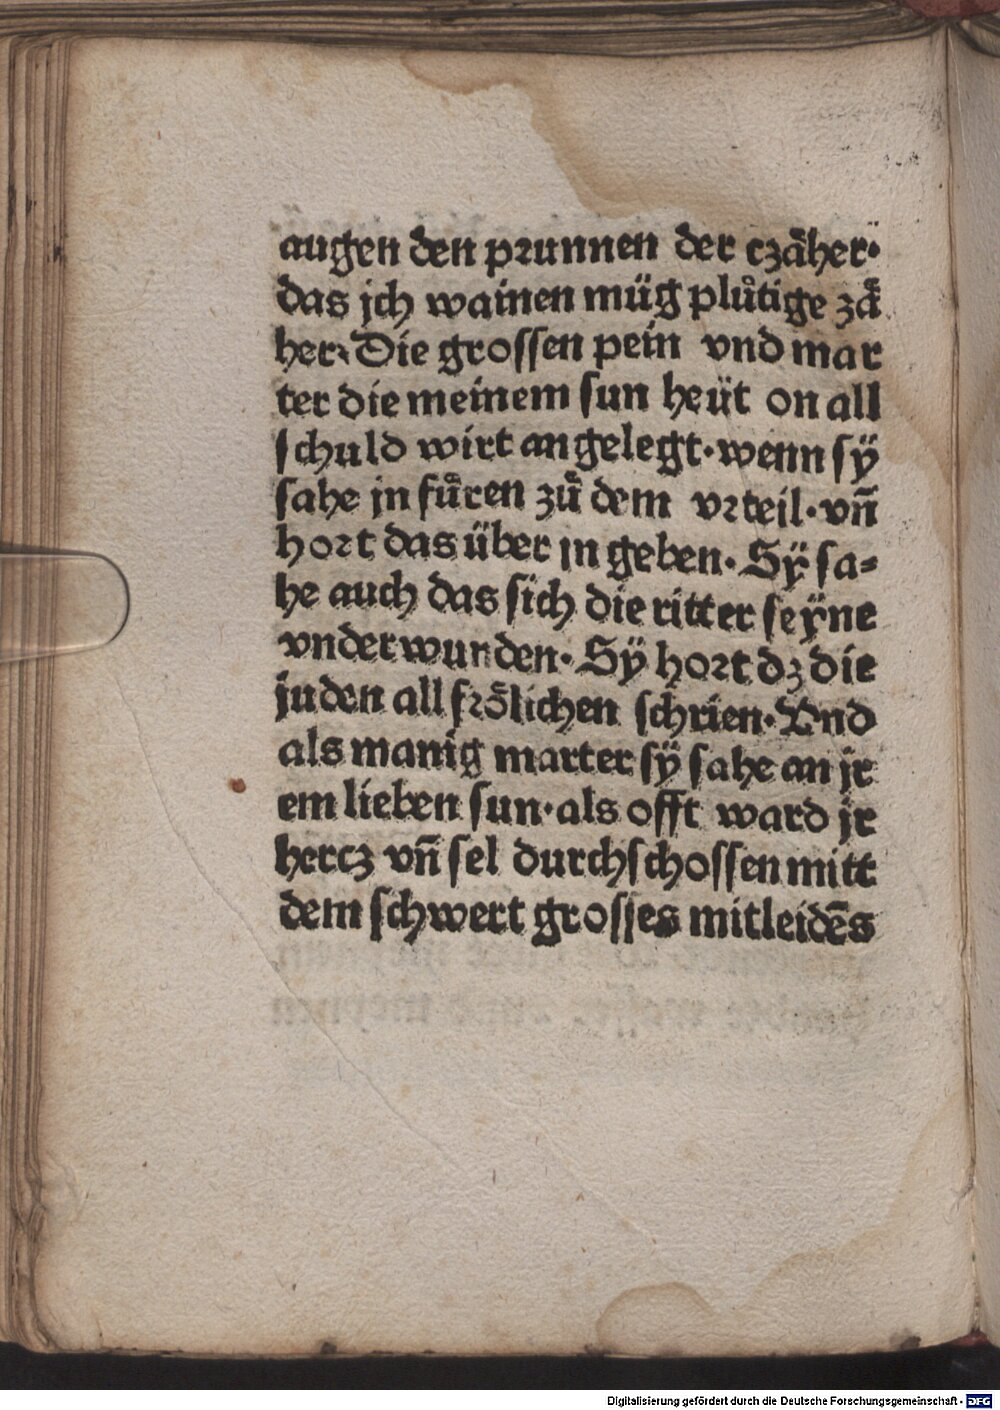 augen den prunnen der czäher·
das jch wainen müg plůtige zä
her· Die grossen pein vnd mar
ter die meinem sun heüt on all
schuld wirt angelegt·wenn sÿ
sahe jn fůren zů dem vrteil·vn̄
hort das über jn geben· Sÿ sa⸗
he auch das sich die ritter seÿne
vnderwunden· Sÿ hort dz die
juden all frölichen schrien·Vnd
als manig marter sÿ sahe an jr
em lieben sun·als offt ward jr
hercz vn̄ sel durchschossen mitt
dem schwert grosses mitleidēs
Digitalisierung gefördert durch die Deutsche Forschungsgemeinschaft - DFG